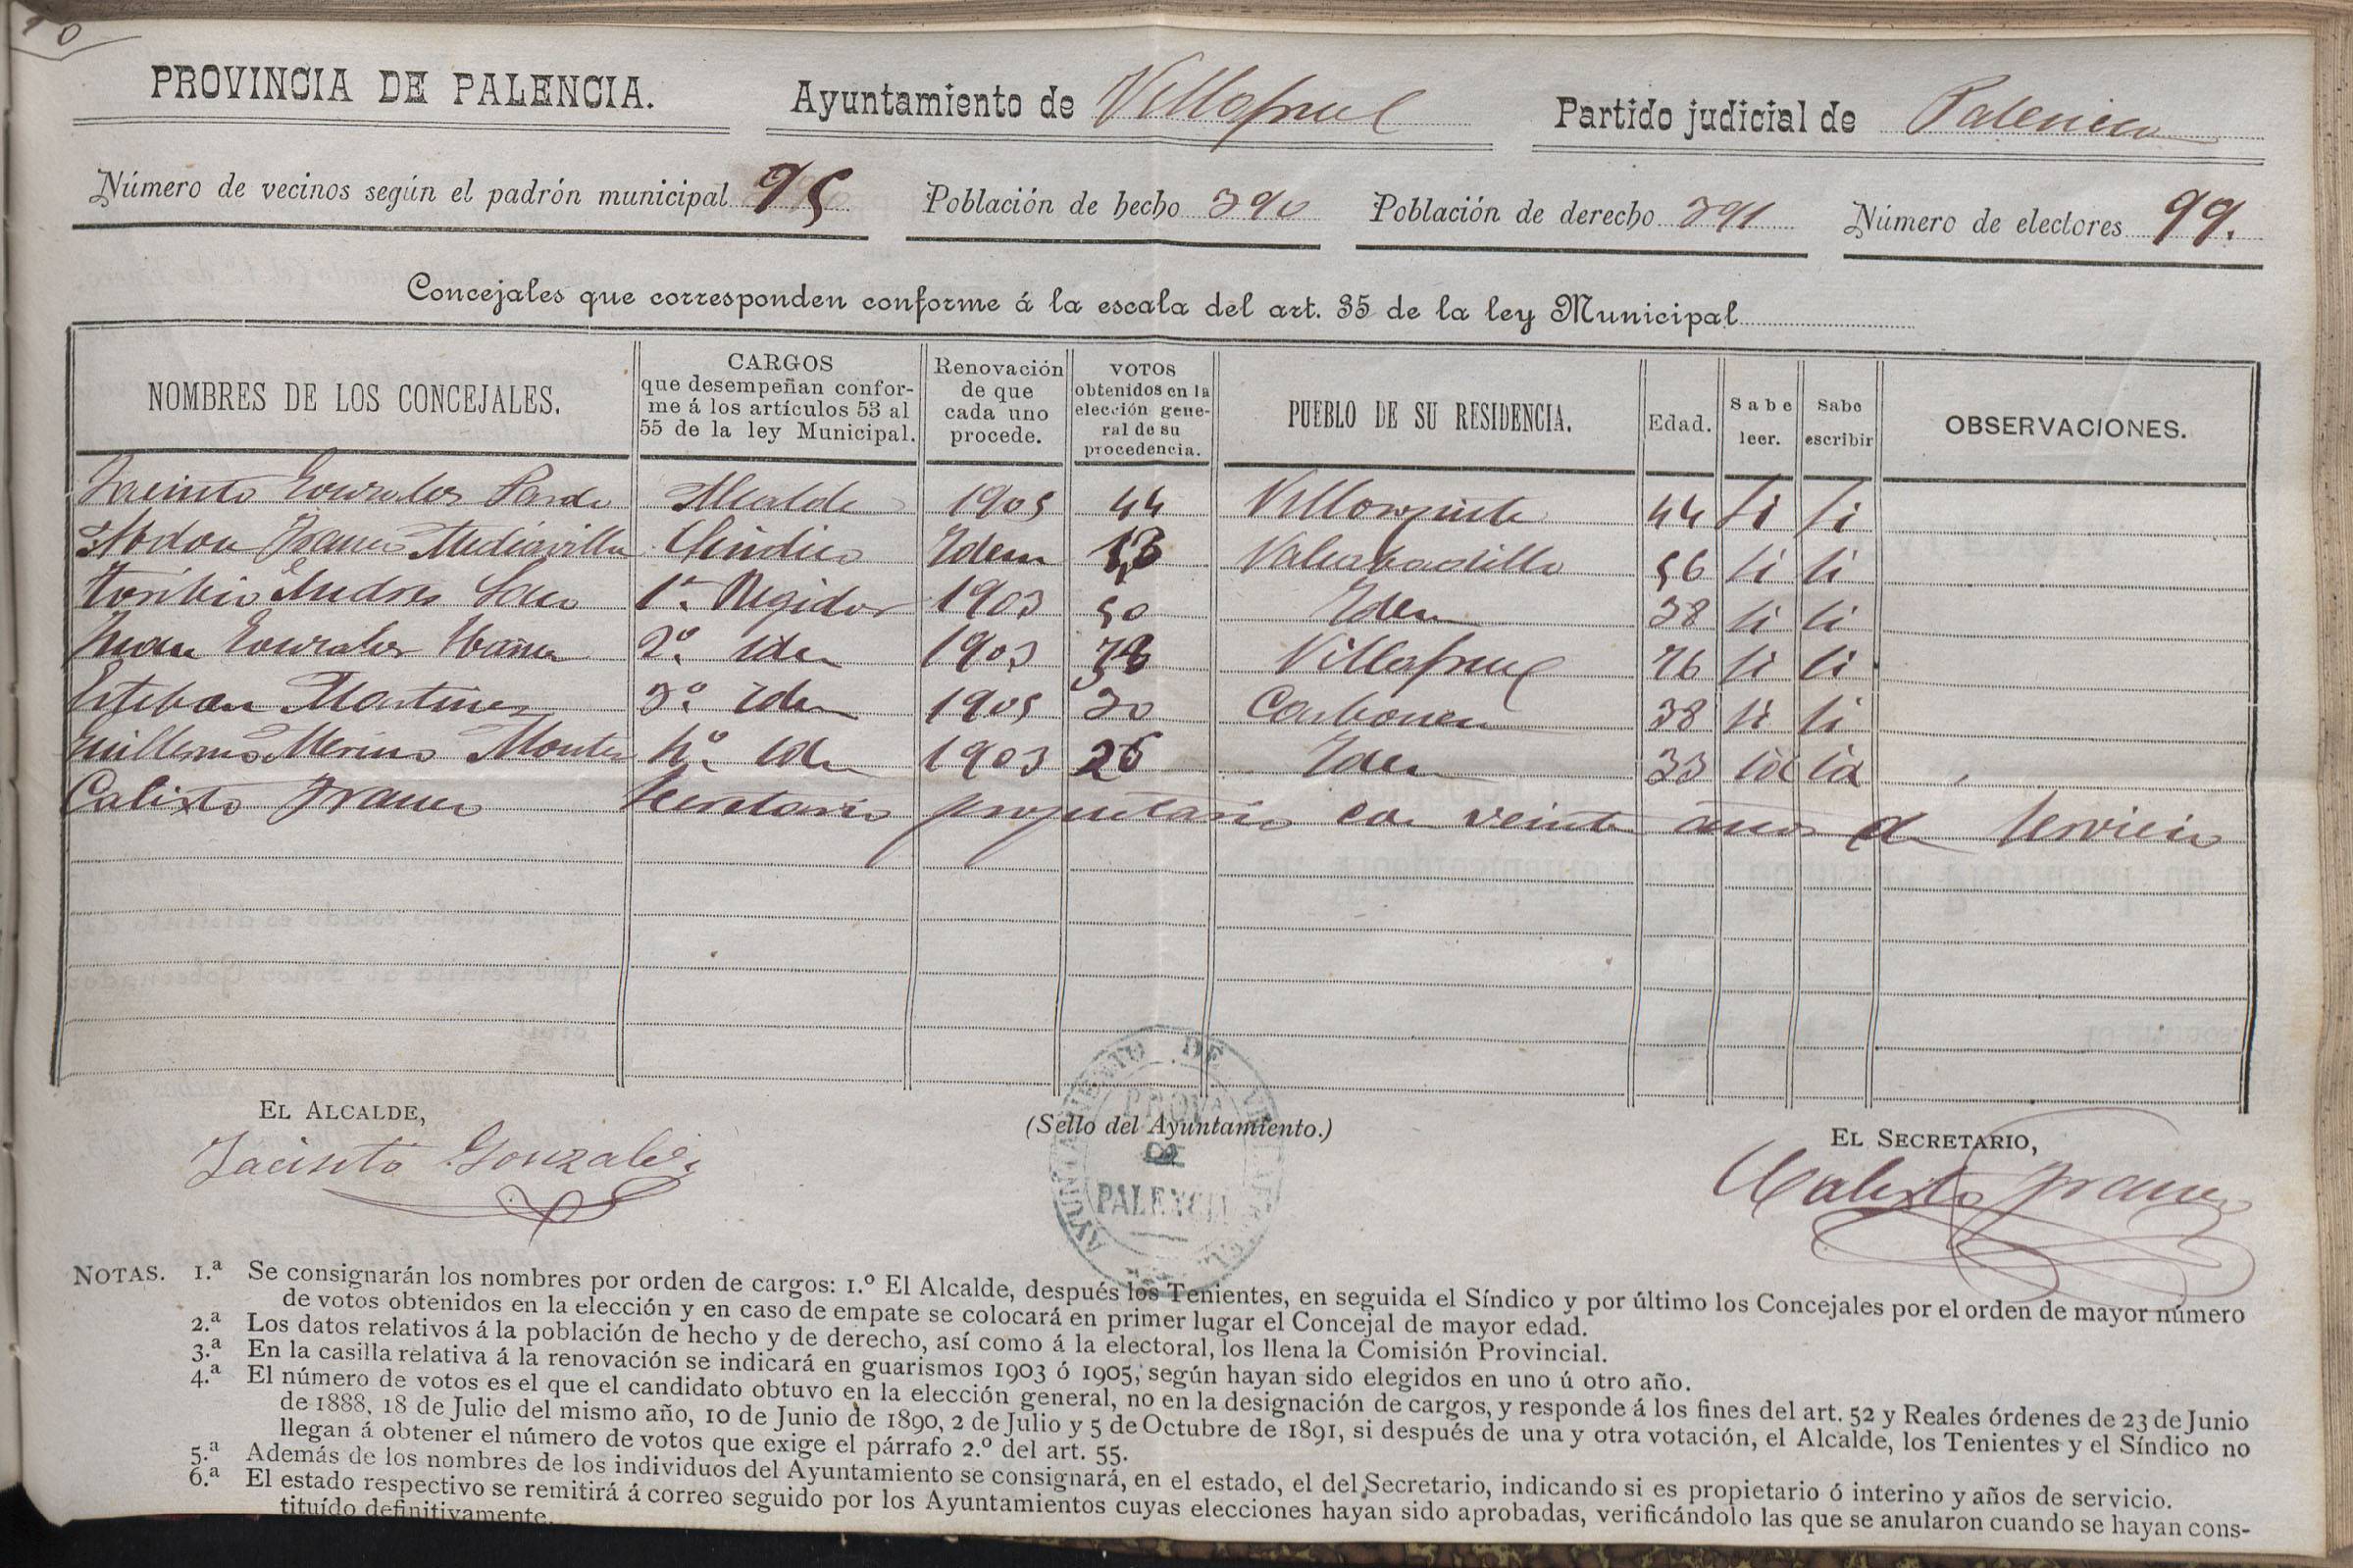 10
PROVINCIA DE PALENCIA. Ayuntamiento de Villafruel Partido judicial de Palencia
Número de vecinos según el padrón municipal 95 Población de hecho 390 Población de derecho 391 Número de electores 99.
Concejales que corresponden conforme á la escala del art. 35 de la ley Municipal
NOMBRES DE LOS CONCEJALES. CARGOS que desempeñan conforme á los artículos 53 al 55 de la ley Municipal. Renovación de que cada uno procede. VOTOS obtenidos en la elección general de su procedencia. PUEBLO DE SU RESIDENCIA. Edad. Sabe leer. Sabe escribir OBSERVACIONES.
Jacinto Gonzales Pardo Alcalde 1905 44 Villorquite 44 Si Si
Abdon Franco Mediavilla Sindico Idem 13 Valcabadillo 56 si si
Toribio Andres Laso 1er Regidor 1903 50 Idem 38 si si
Juan Gonzales Ibañez 2º. Iden 1903 38 Villafruel 76 si si
Esteban Martinez 3º Iden 1905 30 Carbonera 38 si si
Guillermo Merino Montes 4º. Iden 1903 26 Idem 33 id id
Calixto Franco Secretario propietario con veinte años de servicio
EL ALCALDE,
Jacinto Gonzalez
(Sello del Ayuntamiento.)
AYUNTAMIENTO DE VILLAFRUEL
PROVA
DE
PALENCIA
EL SECRETARIO,
Calixto Franco
NOTAS. 1.ª Se consignarán los nombres por orden de cargos: 1.º El Alcalde, después los Tenientes, en seguida el Síndico y por último los Concejales por el orden de mayor número
de votos obtenidos en la elección y en caso de empate se colocará en primer lugar el Concejal de mayor edad.
2.ª Los datos relativos á la población de hecho y de derecho, así como á la electoral, los llena la Comisión Provincial.
3.ª En la casilla relativa á la renovación se indicará en guarismos 1903 ó 1905, según hayan sido elegidos en uno ú otro año.
4.ª El número de votos es el que el candidato obtuvo en la elección general, no en la designación de cargos, y responde á los fines del art. 52 y Reales órdenes de 23 de Junio
de 1888, 18 de Julio del mismo año, 10 de Junio de 1890, 2 de Julio y 5 de Octubre de 1891, si después de una y otra votación, el Alcalde, los Tenientes y el Síndico no
llegan á obtener el número de votos que exige el párrafo 2.º del art. 55.
5.ª Además de los nombres de los individuos del Ayuntamiento se consignará, en el estado, el del Secretario, indicando si es propietario ó interino y años de servicio.
6.ª El estado respectivo se remitirá á correo seguido por los Ayuntamientos cuyas elecciones hayan sido aprobadas, verificándolo las que se anularon cuando se hayan cons-
tituído definitivamente.